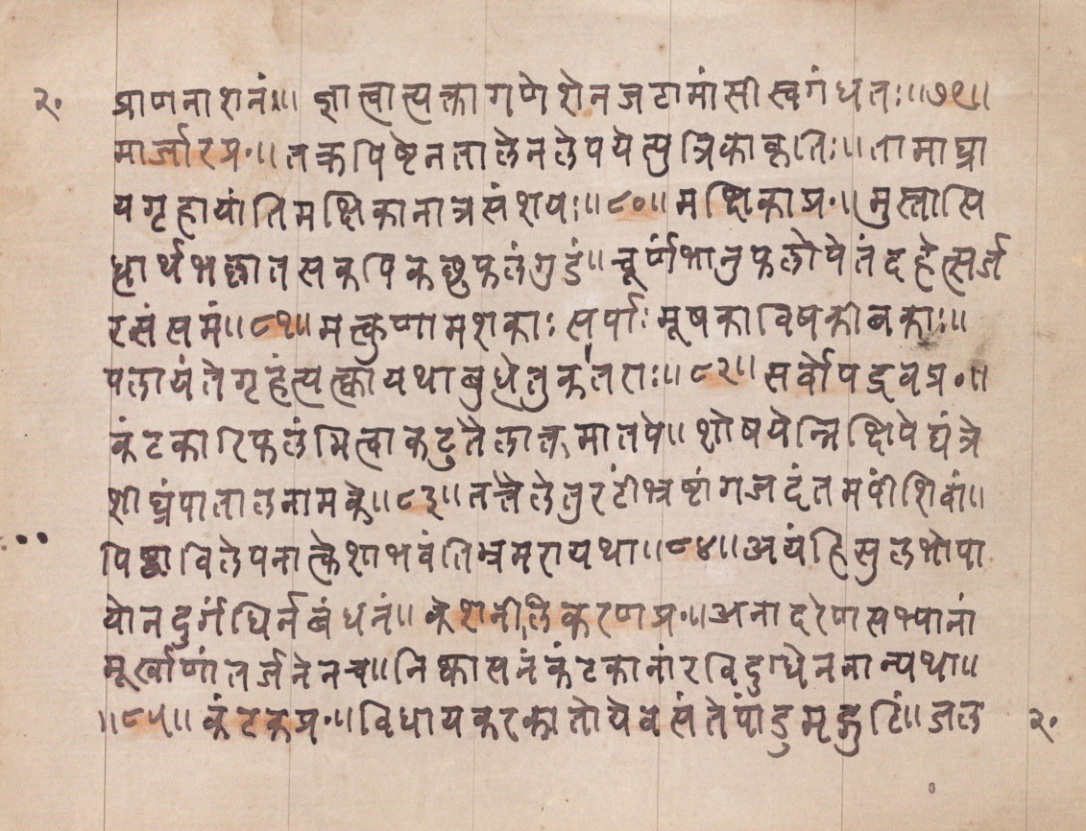 २० प्राणनाशनं॥ ज्ञात्वात्यक्तागणेशेनजटामांसीस्वगंधतः॥७९॥
मार्जारप्र०॥तक्रपिष्टेनतालेनलेपयेत्पुत्रिकाकृतिः॥तामाघ्रा
यगृहायांतिमक्षिकानात्रसंशयः॥८०॥मक्षिकाप्र०॥मुस्तासि
द्धार्थभल्लातसकपिकछुफलंगुडं॥चूर्णंभानुफलोपेतंदहेत्सर्ज
रसंसमं॥८१॥मत्कुणामशकाः सर्पाः मूषकाविषकीबकाः॥
पलायंतेगृहंत्यत्क्वायथाबुधेतुकातराः॥८२॥सर्वोपद्रवप्र०॥
कंटकारिफलंभित्वाकटुतैलाक्तमातपे॥शोषयेन्निक्षिपेद्यंत्रे
शीघ्रंपातालनामके॥८३॥तत्तैलेतुरटीभ्रष्टांगजदंतमषींशिवां॥
पिष्ट्वाविलेपनात्केशाभवंतिभ्रमरायथा॥८४॥अयंहिसुलभोपा
योनदुर्गंधिर्नबंधनं॥केशनीलिकरणप्र०॥अनादरेणसभ्यानां
मूर्खाणांतर्जनेनच॥निष्कासनंकंटकानांरविदुग्धेननान्यथा॥
॥८५॥कंटकप्र०॥विधायकरकातोयेवसंतेपांडुमृद्गुटिं॥जल २०